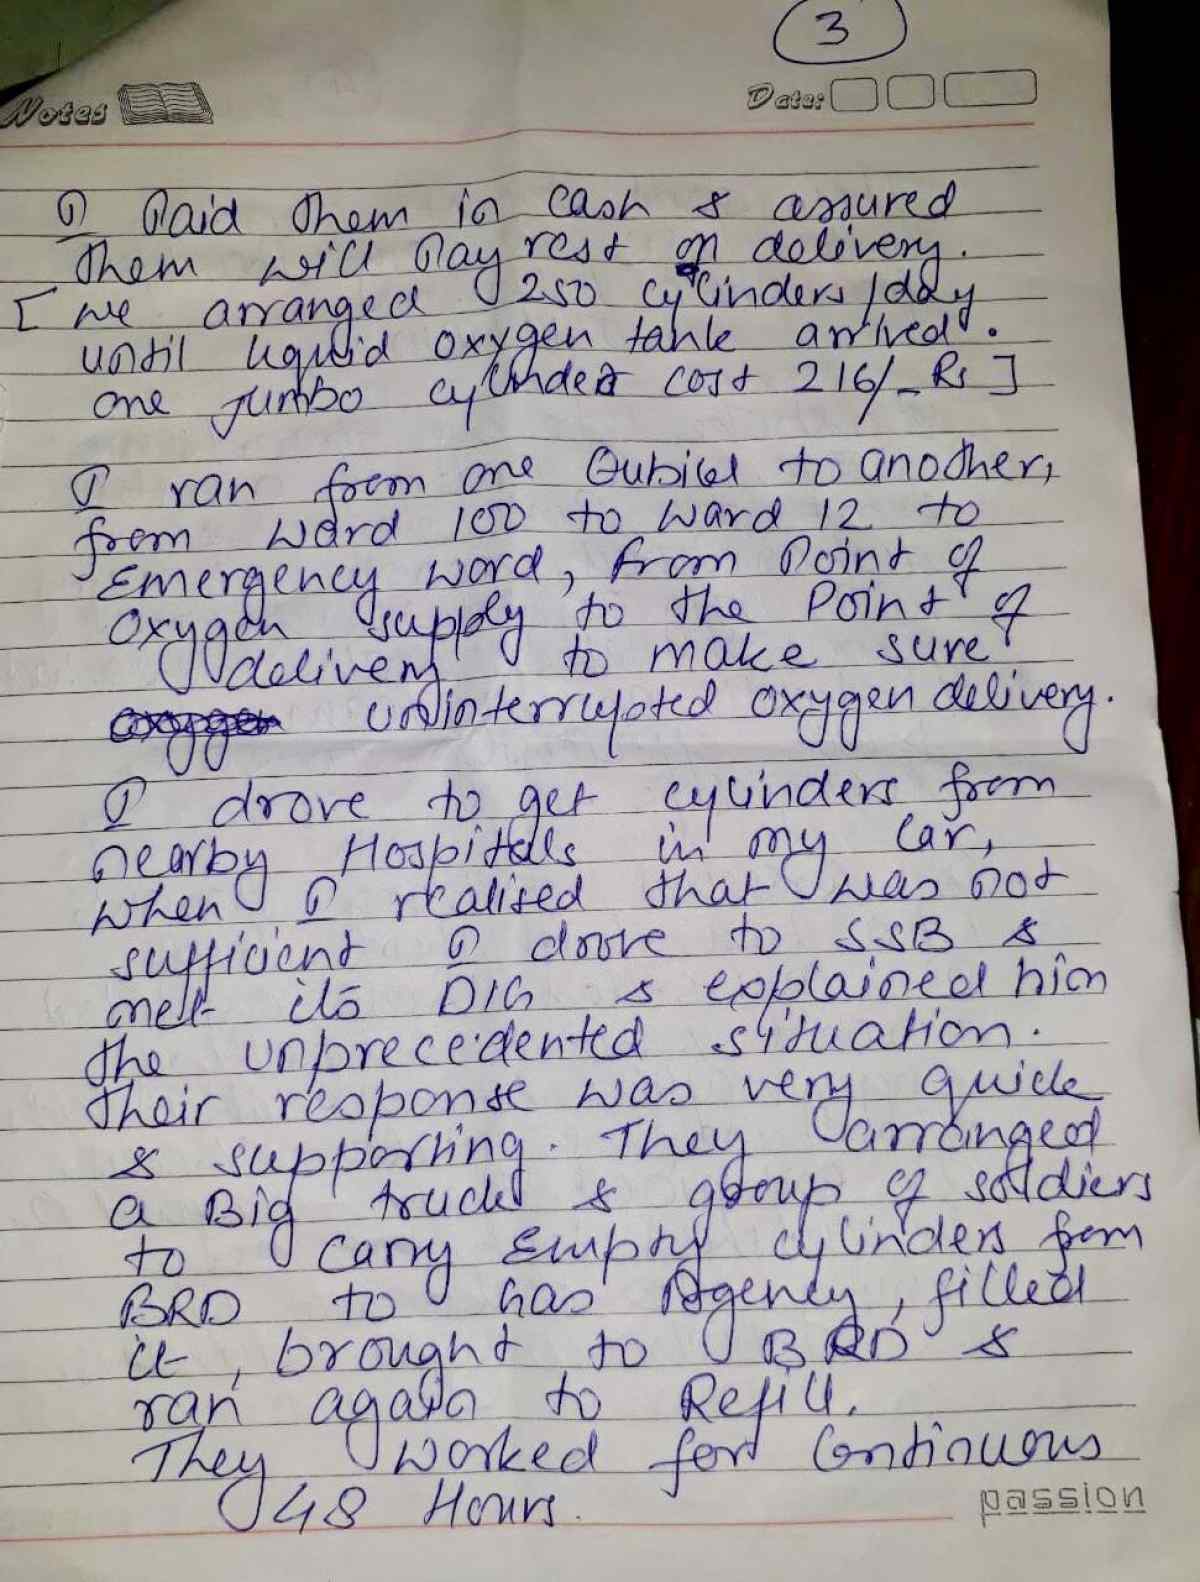 3
Notes
Date:
I Paid them in cash & assured
them will Pay rest on delivery.
[ we arranged 250 cylinders/day
until liquid oxygen tank arrived.
one Jumbo cylinder cost 216/- Rs ]
I ran from one Cubicel to another,
from ward 100 to ward 12 to
Emergency word, from Point of
oxygen supply to the Point of
delivery to make sure
uninterrupted oxygen delivery.
I drove to get cylinders from
nearby Hospitals in my Car,
when I realised that was not
sufficient I drove to SSB &
met its DIG & explained him
the unprecedented situation.
their response was very quick
& supporting. They arranged
a Big truck & group of soldiers
to carry Empty cylinders from
BRD to Gas Agency, filled
it, brought to BRD &
ran again to Refill.
They worked for Continuous
48 Hours.
passion